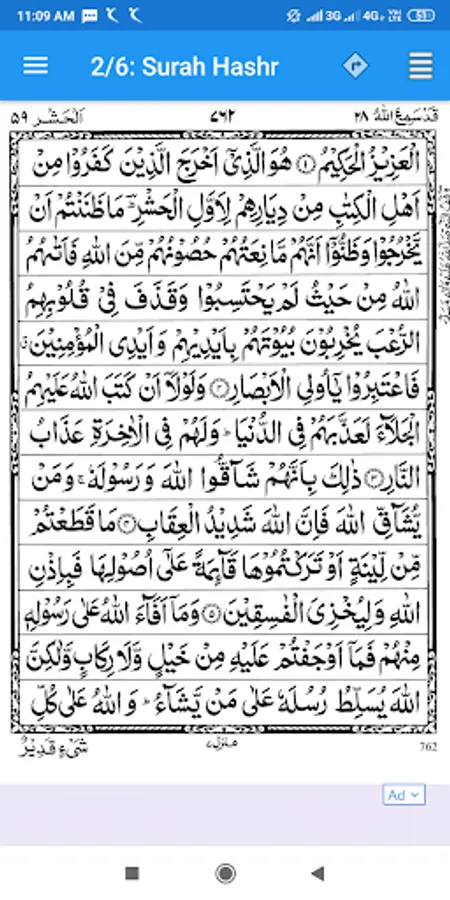 11:09 AM 3G 4G+ VoLTE 51
2/6: Surah Hashr
قَدْ سَمِعَ اللّٰهُ ٢٨ ٧٦٢ اَلْحَشْر ٥٩
الْعَزِيْزُ الْحَكِيْمُ ۝١ هُوَ الَّذِيْۤ اَخْرَجَ الَّذِيْنَ كَفَرُوْا مِنْ
اَهْلِ الْكِتٰبِ مِنْ دِيَارِهِمْ لِاَوَّلِ الْحَشْرِؕ مَا ظَنَنْتُمْ اَنْ
يَّخْرُجُوْا وَظَنُّوْۤا اَنَّهُمْ مَّانِعَتُهُمْ حُصُوْنُهُمْ مِّنَ اللّٰهِ فَاَتٰىهُمُ
اللّٰهُ مِنْ حَيْثُ لَمْ يَحْتَسِبُوْا وَقَذَفَ فِيْ قُلُوْبِهِمُ
الرُّعْبَ يُخْرِبُوْنَ بُيُوْتَهُمْ بِاَيْدِيْهِمْ وَاَيْدِى الْمُؤْمِنِيْنَ
فَاعْتَبِرُوْا يٰۤاُولِى الْاَبْصَارِ ۝٢ وَلَوْلَاۤ اَنْ كَتَبَ اللّٰهُ عَلَيْهِمُ
الْجَلَآءَ لَعَذَّبَهُمْ فِى الدُّنْيَاؕ وَلَهُمْ فِى الْاٰخِرَةِ عَذَابُ
النَّارِ ۝٣ ذٰلِكَ بِاَنَّهُمْ شَآقُّوا اللّٰهَ وَرَسُوْلَهٗۚ وَمَنْ
يُّشَآقِّ اللّٰهَ فَاِنَّ اللّٰهَ شَدِيْدُ الْعِقَابِ ۝٤ مَا قَطَعْتُمْ
مِّنْ لِّيْنَةٍ اَوْ تَرَكْتُمُوْهَا قَآئِمَةً عَلٰۤى اُصُوْلِهَا فَبِاِذْنِ
اللّٰهِ وَلِيُخْزِىَ الْفٰسِقِيْنَ ۝٥ وَمَاۤ اَفَآءَ اللّٰهُ عَلٰى رَسُوْلِهٖ
مِنْهُمْ فَمَاۤ اَوْجَفْتُمْ عَلَيْهِ مِنْ خَيْلٍ وَّلَا رِكَابٍ وَّلٰكِنَّ
اللّٰهَ يُسَلِّطُ رُسُلَهٗ عَلٰى مَنْ يَّشَآءُؕ وَاللّٰهُ عَلٰى كُلِّ
شَيْءٍ قَدِيْرٌ منزل٧ 762
Ad